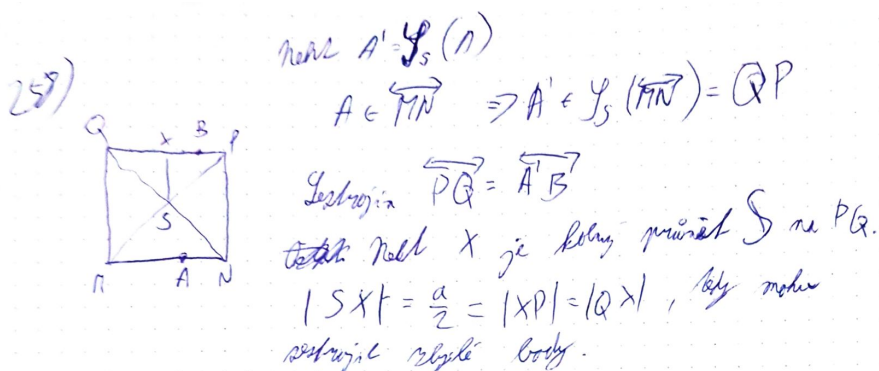 258)
Q X B P
S
M A N
Nechť A' = 𝒮ₛ(A)
A ∈ ↔MN ⇒ A' ∈ 𝒮ₛ(↔MN) = QP
Sestrojím ↔PQ = ↔A'B
Nechť X je kolmý průmět S na PQ.
|SX| = a/2 = |XP| = |QX|, tedy mohu
sestrojit zbylé body.